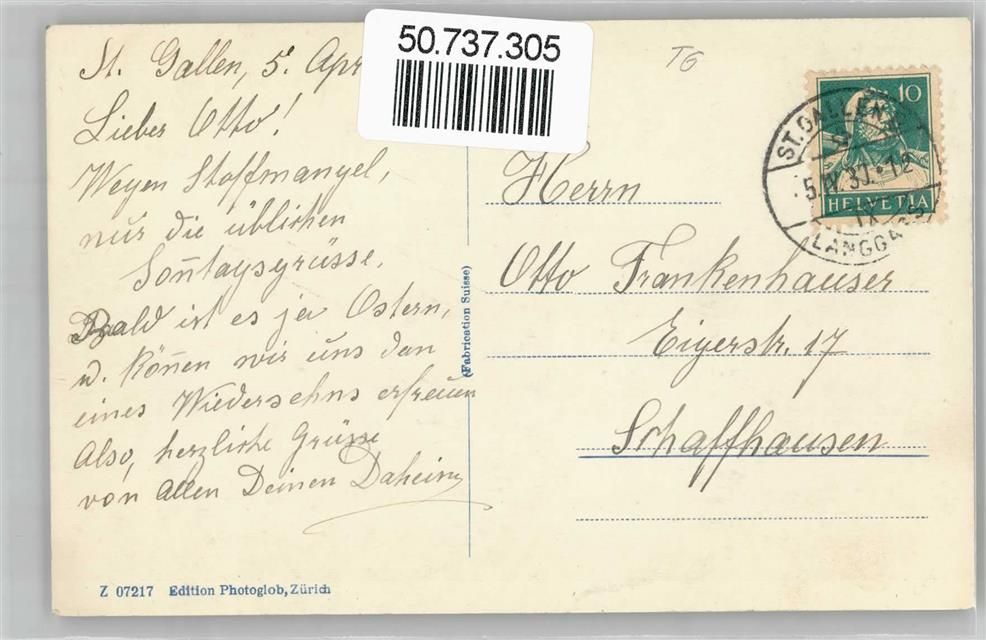 50.737.305
TG
St. Gallen, 5. Apr
Lieber Otto!
Wegen Stoffmangel,
nur die üblichen
Soñtagsgrüsse.
Bald ist es ja Ostern,
u. köñen wir uns dan
eines Wiedersehns erfreuen
Also, herzliche Grüsse
von allen Deinen Daheim
Herrn
Otto Frankenhauser
Eigerstr. 17
Schaffhausen
10
HELVETIA
ST. GALLEN
5. IV 30. 12
IX
LANGGASS
(Fabrication Suisse)
Z 07217 Edition Photoglob, Zürich